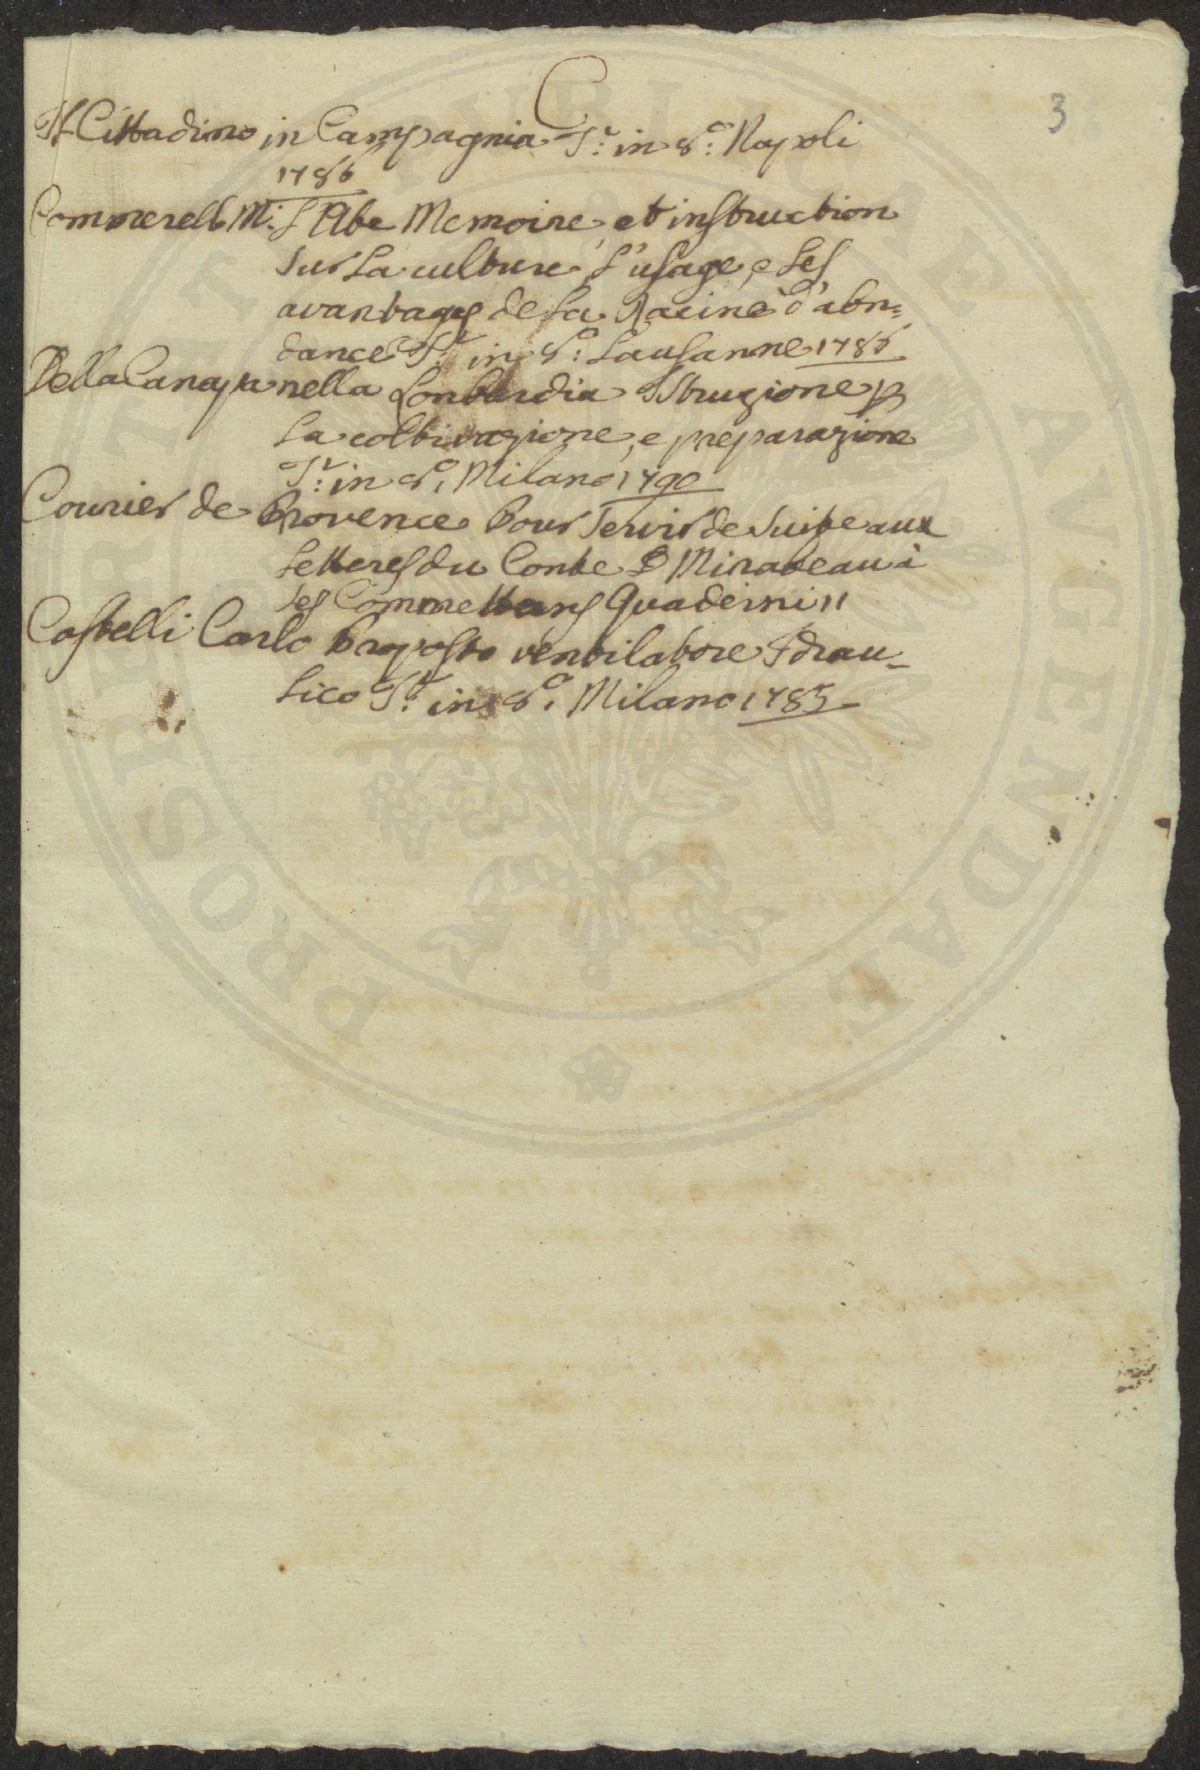 C
3
Il Cittadino in Campagnia T.º in 8.º Napoli
1786
Commerell M.r L'Abe Memoire, et instruction
sur la culture, l'usage, e les
avantages de la Racine d'abn=
dance T.º in 8.º Lausanne 1786
Della Canapa nella Lonbardia Istruzione p
la coltivazione, e preparazione
T.º in 8.º Milano 1790
Courier de Provence Pour servir de suite aux
Letteres du Conte D Mirabeau à
ses Commettans Quaderni 11
Castelli Carlo Proposto ventilatore Idrau-
lico T.º in 8.º Milano 1785
PROSPERITATI PUBLICAE AUGENDAE